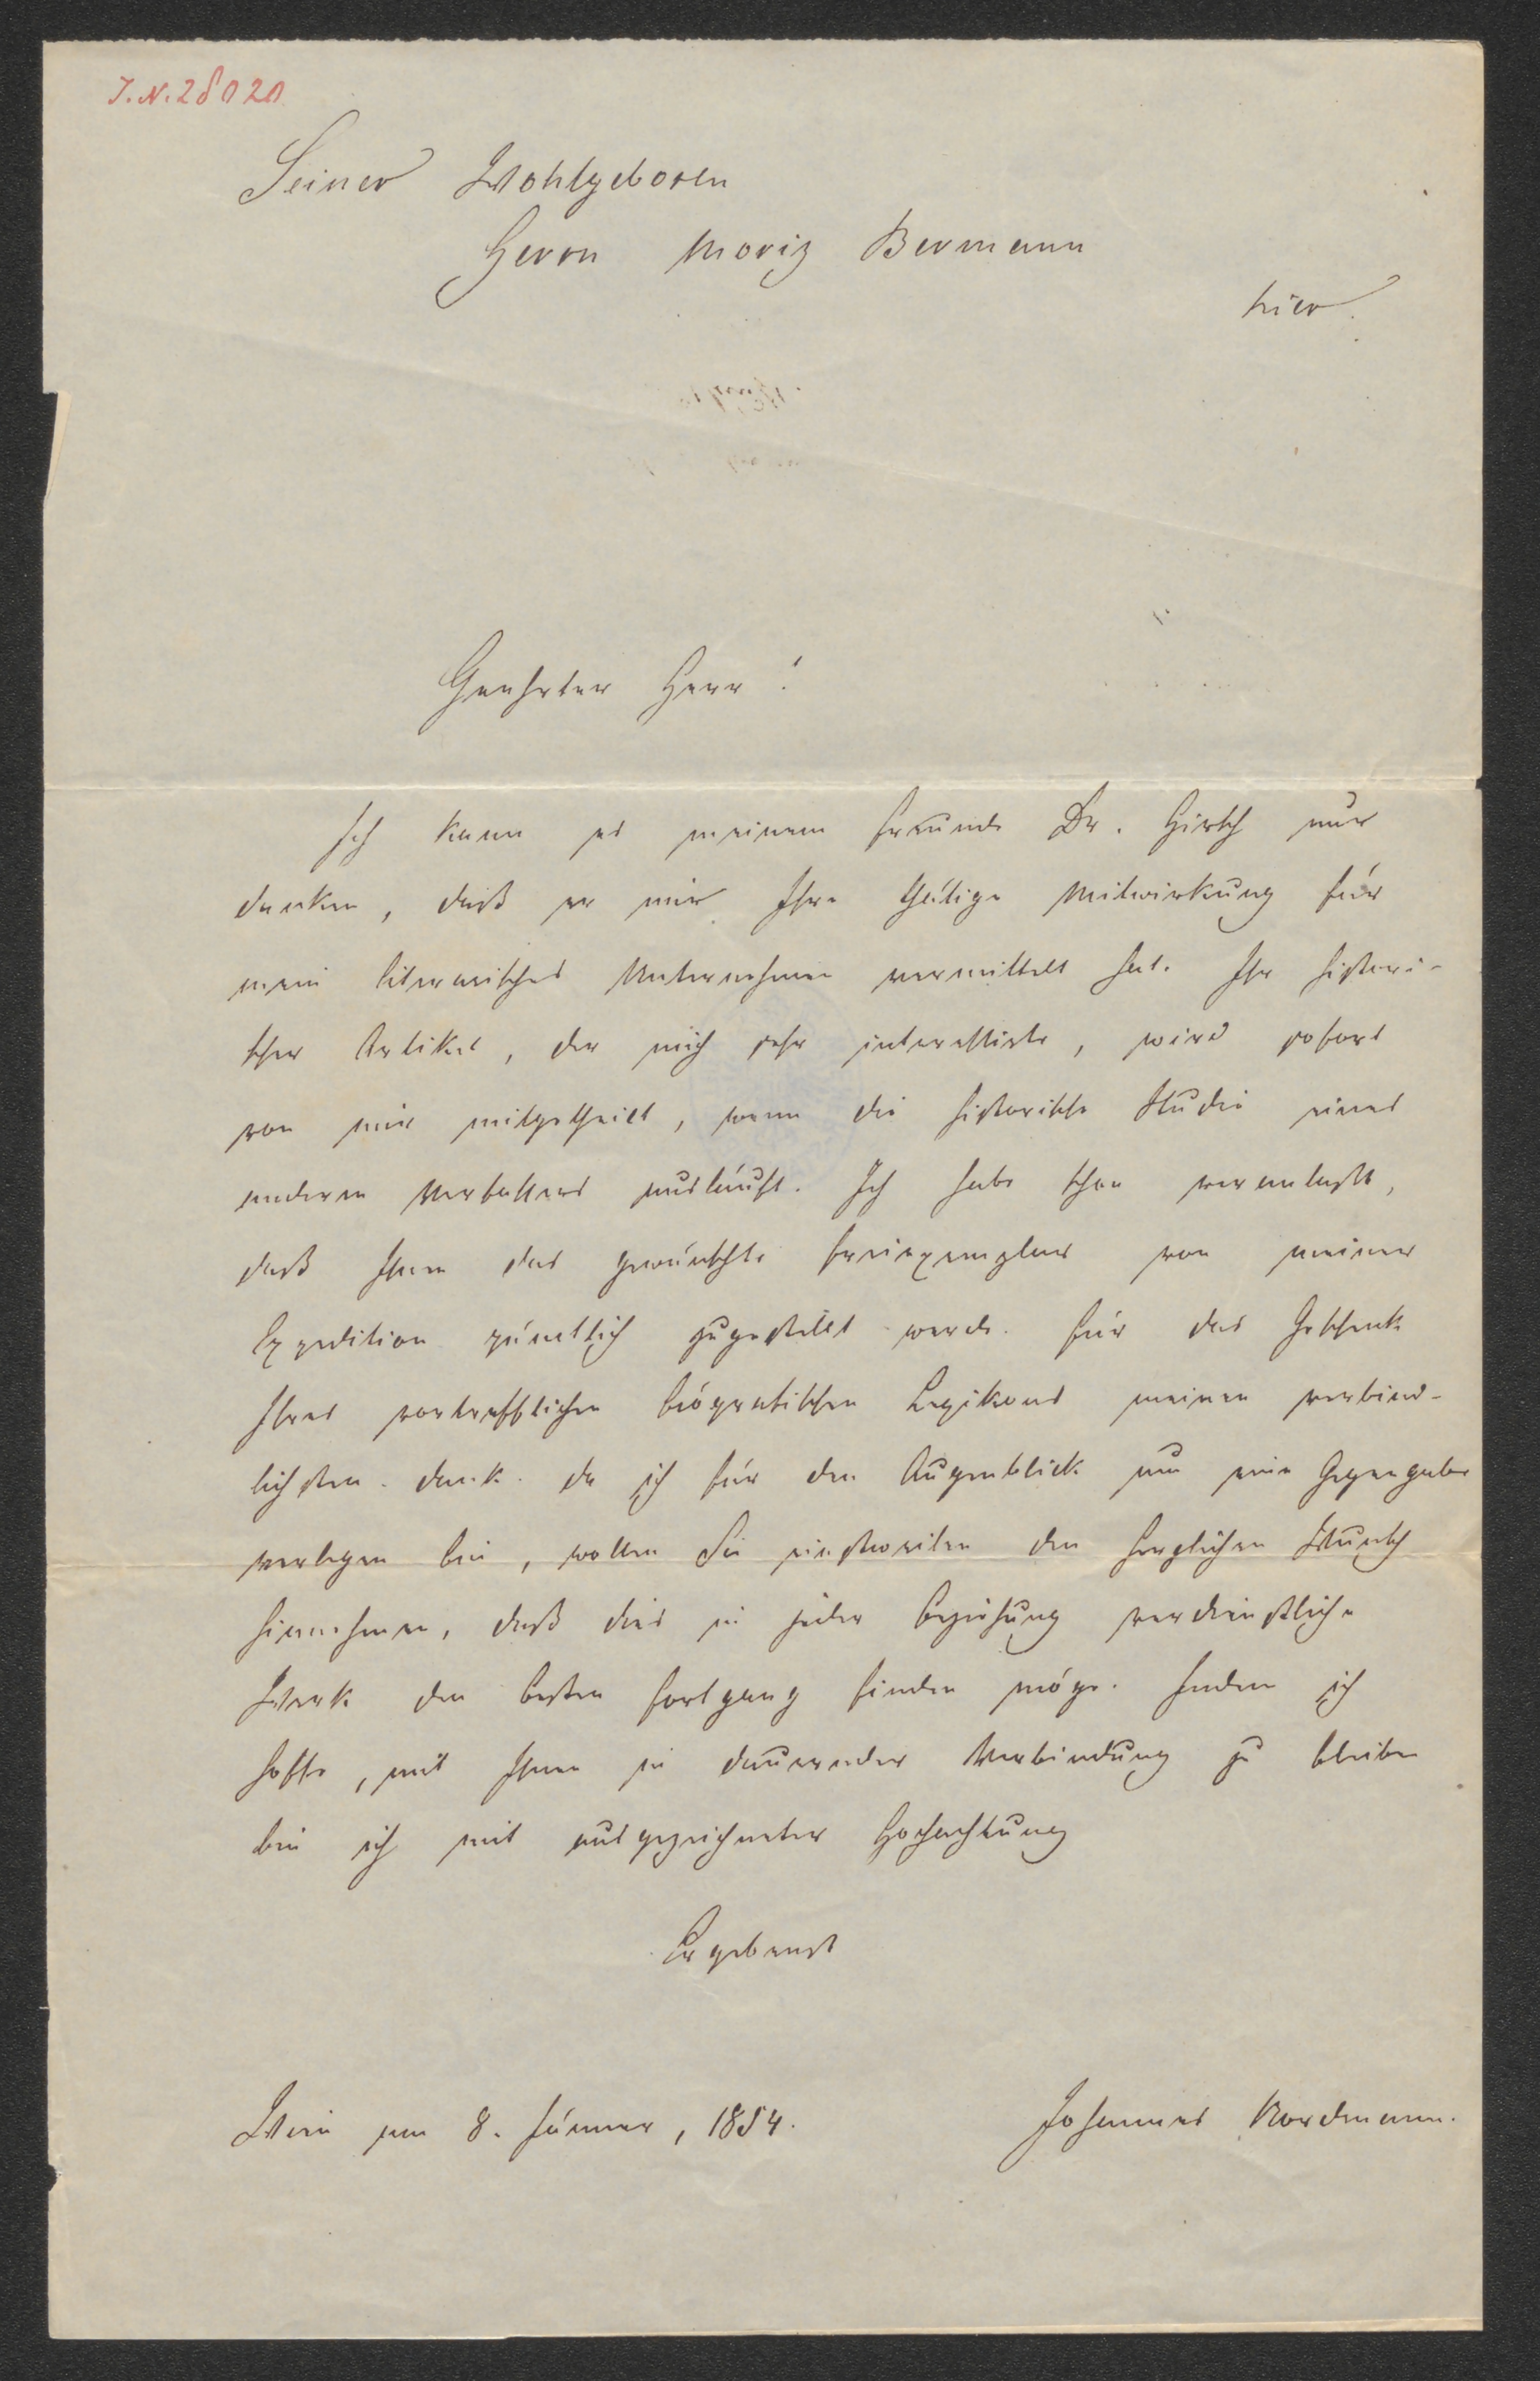 J.N. 28020
Seiner Wohlgeboren
Herrn Moriz Bermann
hier.
Geehrter Herr!
Ich kann es meinem Freunde Dr. Hirsch nur
danken, daß er mir Ihre thätige Mitwirkung für
mein literarisches Unternehmen vermittelt hat. Ihr histori-
scher Artikel, der mich sehr interessirte, wird sofort
von mir mitgetheilt, wenn die historische Studie eines
anderen Verfassers ausläuft. Ich habe schon veranlaßt,
daß Ihnen das gewünschte Freiexemplar von meiner
Expedition pünctlich zugestellt werde. Für das Geschenk
Ihres vortrefflichen biografischen Lexikons meinen verbind-
lichsten Dank. Da ich für den Augenblick um eine Gegengabe
verlegen bin, wollen Sie einstweilen den herzlichen Wunsch
hinnehmen, daß dies in jeder Beziehung verdienstliche
Werk den besten Fortgang finden möge. Indem ich
hoffe, mit Ihnen in dauernder Verbindung zu bleiben
bin ich mit ausgezeichneter Hochachtung
Ergebenst
Wien am 8. Jänner, 1854.
Johannes Nordmann.